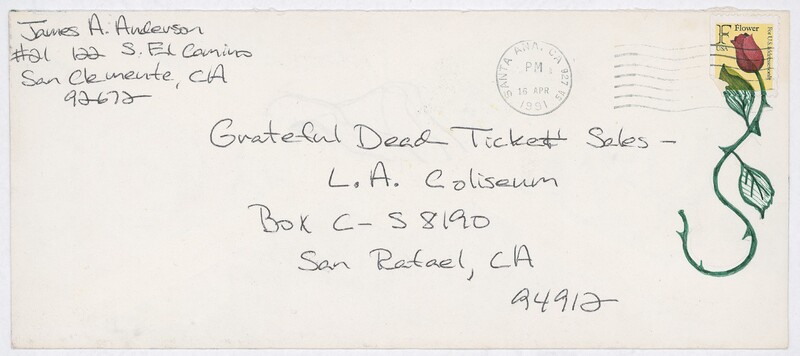 James A. Anderson
#21 122 S. El Camino
San Clemente, CA
92672
SANTA ANA, CA 927
PM
16 APR
1991
F Flower
USA
For U.S. addresses only
Grateful Dead Ticket Sales –
L.A. Coliseum
Box C-S 8190
San Rafael, CA
94912